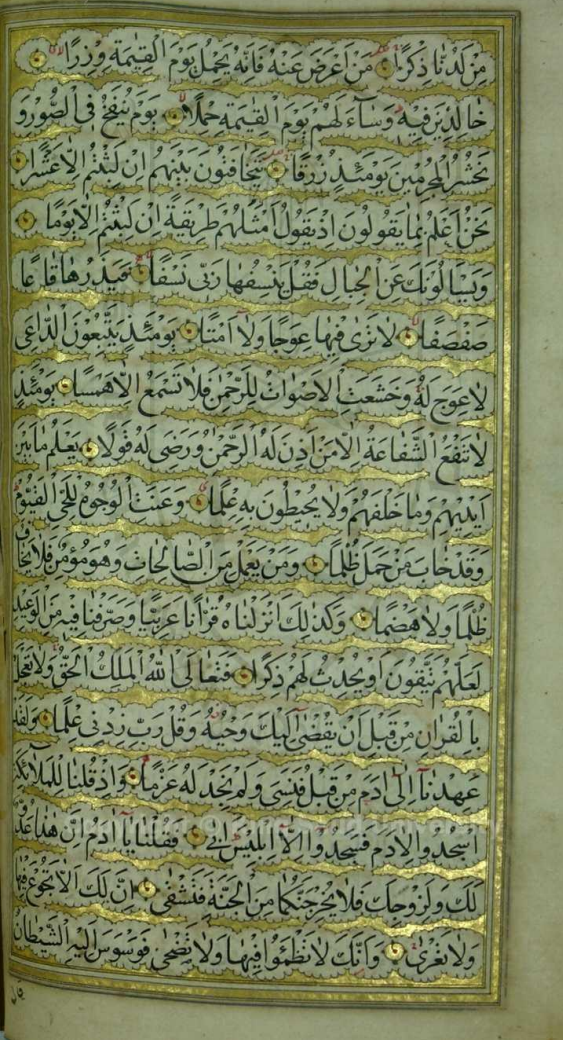 مِنْ لَدُنَّا ذِكْرًا مَنْ اَعْرَضَ عَنْهُ فَاِنَّهُ يَحْمِلُ يَوْمَ الْقِيٰمَةِ وِزْرًا
خَالِدِينَ فِيهِ وَسَآءَ لَهُمْ يَوْمَ الْقِيٰمَةِ حِمْلًا يَوْمَ يُنْفَخُ فِي الصُّورِ وَ
نَحْشُرُ الْمُجْرِمِينَ يَوْمَئِذٍ زُرْقًا يَتَخَافَتُونَ بَيْنَهُمْ اِنْ لَبِثْتُمْ اِلَّا عَشْرًا
نَحْنُ اَعْلَمُ بِمَا يَقُولُونَ اِذْ يَقُولُ اَمْثَلُهُمْ طَرِيقَةً اِنْ لَبِثْتُمْ اِلَّا يَوْمًا
وَيَسْاَلُونَكَ عَنِ الْجِبَالِ فَقُلْ يَنْسِفُهَا رَبِّي نَسْفًا فَيَذَرُهَا قَاعًا
صَفْصَفًا لَا تَرٰى فِيهَا عِوَجًا وَلَا اَمْتًا يَوْمَئِذٍ يَتَّبِعُونَ الدَّاعِيَ
لَا عِوَجَ لَهُ وَخَشَعَتِ الْاَصْوَاتُ لِلرَّحْمٰنِ فَلَا تَسْمَعُ اِلَّا هَمْسًا يَوْمَئِذٍ
لَا تَنْفَعُ الشَّفَاعَةُ اِلَّا مَنْ اَذِنَ لَهُ الرَّحْمٰنُ وَرَضِيَ لَهُ قَوْلًا يَعْلَمُ مَا بَيْنَ
اَيْدِيهِمْ وَمَا خَلْفَهُمْ وَلَا يُحِيطُونَ بِهِ عِلْمًا وَعَنَتِ الْوُجُوهُ لِلْحَيِّ الْقَيُّومِ
وَقَدْ خَابَ مَنْ حَمَلَ ظُلْمًا وَمَنْ يَعْمَلْ مِنَ الصَّالِحَاتِ وَهُوَ مُؤْمِنٌ فَلَا يَخَافُ
ظُلْمًا وَلَا هَضْمًا وَكَذٰلِكَ اَنْزَلْنَاهُ قُرْاٰنًا عَرَبِيًّا وَصَرَّفْنَا فِيهِ مِنَ الْوَعِيدِ
لَعَلَّهُمْ يَتَّقُونَ اَوْ يُحْدِثُ لَهُمْ ذِكْرًا فَتَعَالَى اللّٰهُ الْمَلِكُ الْحَقُّ وَلَا تَعْجَلْ
بِالْقُرْاٰنِ مِنْ قَبْلِ اَنْ يُقْضٰى اِلَيْكَ وَحْيُهُ وَقُلْ رَبِّ زِدْنِي عِلْمًا وَلَقَدْ
عَهِدْنَآ اِلٰى اٰدَمَ مِنْ قَبْلُ فَنَسِيَ وَلَمْ نَجِدْ لَهُ عَزْمًا وَاِذْ قُلْنَا لِلْمَلٰٓئِكَةِ
اسْجُدُوا لِاٰدَمَ فَسَجَدُوٓا اِلَّآ اِبْلِيسَ اَبٰى فَقُلْنَا يَآ اٰدَمُ اِنَّ هٰذَا عَدُوٌّ
لَكَ وَلِزَوْجِكَ فَلَا يُخْرِجَنَّكُمَا مِنَ الْجَنَّةِ فَتَشْقٰى اِنَّ لَكَ اَلَّا تَجُوعَ فِيهَا
وَلَا تَعْرٰى وَاَنَّكَ لَا تَظْمَؤُا فِيهَا وَلَا تَضْحٰى فَوَسْوَسَ اِلَيْهِ الشَّيْطَانُ